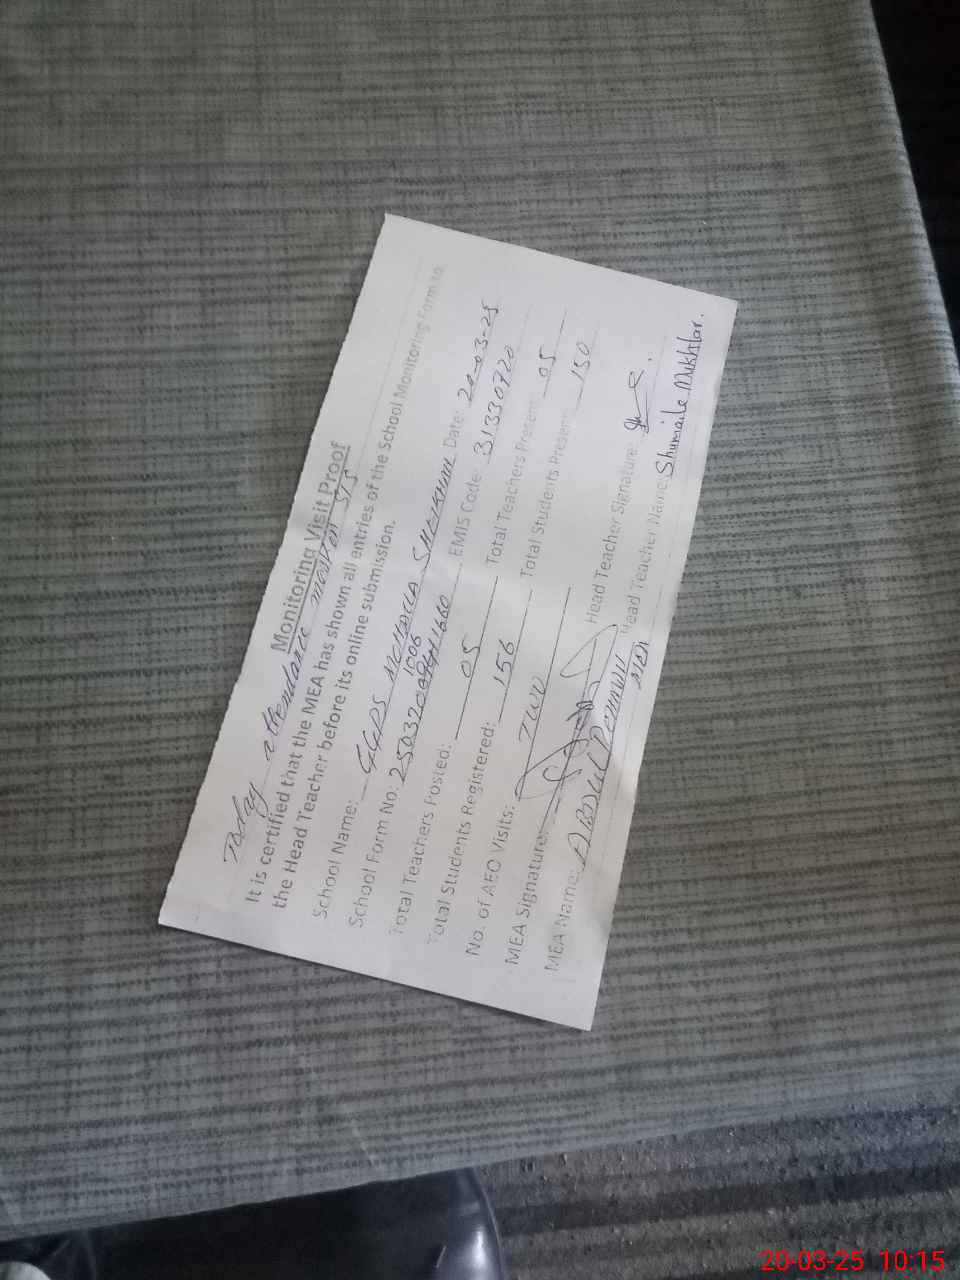 Monitoring Visit Proof
Today attendance marked on SIS
It is certified that the MEA has shown all entries of the School Monitoring Form to
the Head Teacher before its online submission.
School Name: GGPS MOHALLA SHEIKHAN Date: 20-03-25
School Form No: EMIS Code: 31330920
Total Teachers Posted: 05 Total Teachers Present: 05
Total Students Registered: 156 Total Students Present: 150
No. of AEO Visits: TWO
MEA Signature: Head Teacher Signature:
MEA Name: ABDUL REHMAN Head Teacher Name: Shumaila Mukhtar.
20-03-25 10:15